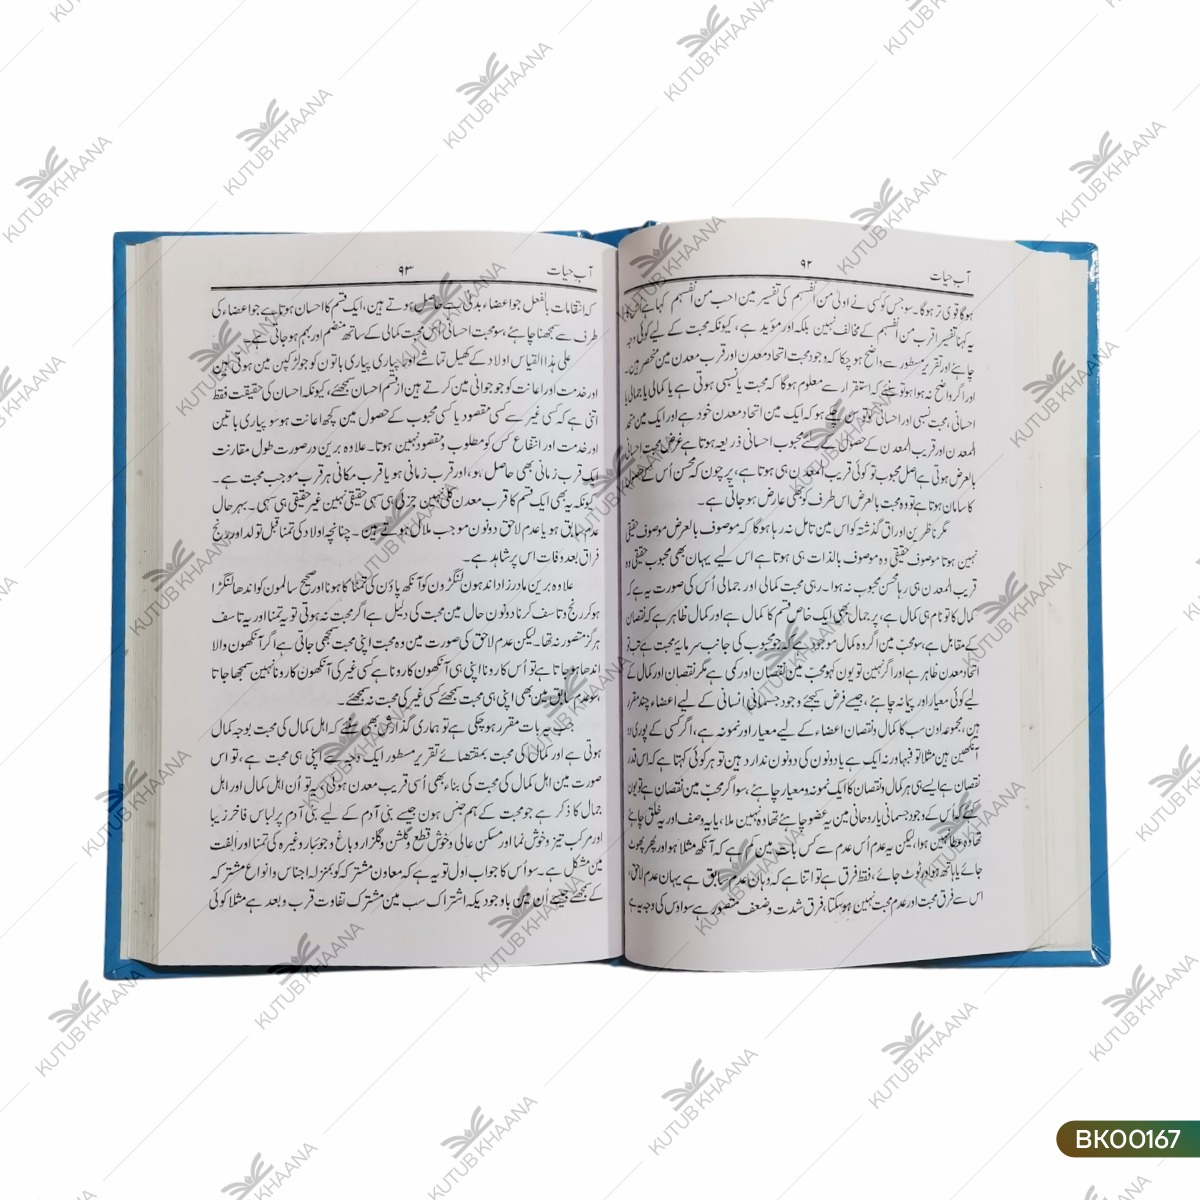 آب حیات
۹۲
ہوگا قوی تر ہوگا۔ سو جس کو کسی نے اولیٰ من انفسہم کی تفسیر مین احب من انفسہم کہا ہے
یہ کہنا تفسیر اقرب من انفسہم کے مخالف نہین بلکہ اور مؤید ہے، کیونکہ محبت کے لیے کوئی وجہ
چاہئے اور تقریر مسطور سے واضح ہوچکا کہ وجود محبت اتحاد معدن اور قرب معدن مین منحصر ہین۔
اور اگر واضح نہ ہوا ہو تو سنئے کہ استقرار سے معلوم ہوگا کہ محبت یا نسبی ہوتی ہے یا کمالی یا جمالی یا
احسانی، محبت نسبی اور احسانی کو تو سن چکے ہو کہ ایک مین اتحاد معدن خود ہے اور ایک مین
المعدن اور قریب المعدن کے حصول کے لئے محبوب احسانی ذریعہ ہوتا ہے غرض محبت احسانی
بالعرض ہوتی ہے اصل محبوب تو کوئی قریب المعدن ہی ہوتا ہے، پر چون کہ محسن اُس کے حصول
کا سامان ہوتا ہے تو وہ محبت بالعرض اس طرف کو بھی عارض ہوجاتی ہے۔
مگر ناظرین اوراق گذشتہ کو اس مین تامل نہ رہا ہوگا کہ موصوف بالعرض موصوف حقیقی
نہین ہوتا موصوف حقیقی وہ موصوف بالذات ہی ہوتا ہے اس لیے یہان بھی محبوب حقیقی وہ
قریب المعدن ہی رہا محسن محبوب نہ ہوا۔ رہی محبت کمالی اور جمالی اُس کی صورت یہ ہے کہ
کمال کا تو نام ہی کمال ہے، پر جمال بھی ایک خاص قسم کا کمال ہے اور کمال ظاہر ہے کہ نقصان
کے مقابل ہے، سو محب مین اگر وہ کمال موجود ہے کہ جو محبوب کی جانب سرمایۂ محبت ہے تب تو
اتحاد معدن ظاہر ہے اور اگر نہین تو یون کہو محب مین نقصان اور کمی ہے مگر نقصان اور کمال کے
لیے کوئی معیار اور پیمانہ چاہئے، جیسے فرض کیجئے وجود جسمانی انسانی کے لیے اعضاء چند مقرر
ہین، مجموعہ اون سب کا کمال و نقصان اعضاء کے لیے معیار اور نمونہ ہے، اگر کسی کے پوری دو
آنکھین ہین مثلا تو فبہا ورنہ ایک ہے یا دونون کی دونون ندارد ہین تو ہر کوئی کہتا ہے کہ اس قدر
نقصان ہے ایسے ہی ہر کمال و نقصان کا ایک نمونہ و معیار چاہئے، سو اگر محب مین نقصان ہے تو یون
کہئے کہ اس کے وجود جسمانی یا روحانی مین یہ عضو چاہئے تھا وہ نہین ملا، یا یہ وصف اور یہ خلق چاہئے
تھا وہ عطا نہین ہوا، لیکن یہ عدم اُس عدم سے کس بات مین کم ہے کہ آنکھ مثلا ہو اور پھر پھوٹ
جائے یا ہاتھ ہو اور ٹوٹ جائے، فقط فرق ہے تو اتنا ہے کہ وہان عدم سابق ہے یہان عدم لاحق،
اس سے فرق محبت اور عدم محبت نہین ہوسکتا، فرق شدت و ضعف متصور ہے سو اوس کی وجہ یہ ہے
آب حیات
۹۳
کہ انتقامات بالفعل جو اعضاء بدنی سے حاصل ہوتے ہین، ایک قسم کا احسان ہوتا ہے جو اعضاء کی
طرف سے سمجھنا چاہئے، سو محبت احسانی اُس محبت کمالی کے ساتھ منضم اور بہم ہوجاتی ہے۔
علی ہذا القیاس اولاد کے کھیل تماشے اور پیاری پیاری باتون کو جو لڑکپن مین ہوتی ہین
اور خدمت اور اعانت کو جو جوانی مین کرتے ہین از قسم احسان سمجھئے، کیونکہ احسان کی حقیقت فقط
اتنی ہے کہ کسی غیر سے کسی مقصود یا کسی محبوب کے حصول مین کچھ اعانت ہو سو پیاری باتین
اور خدمت اور انتفاع کس کو مطلوب و مقصود نہین ہوتا۔ علاوہ برین در صورت طول مقارنت
ایک قرب زمانی بھی حاصل ہو، اور قرب زمانی ہو یا قرب مکانی ہر قرب موجب محبت ہے۔
کیونکہ یہ بھی ایک قسم کا قرب معدن کلی نہین جزئی ہی سہی حقیقی نہین غیر حقیقی ہی سہی۔ بہرحال
عدم سابق ہو یا عدم لاحق دونون موجب ملال ہوتے ہین۔ چنانچہ اولاد کی تمنا قبل تولد اور رنج
فراق بعد وفات اس پر شاہد ہے۔
علاوہ برین مادرزاد اندہون لنگڑون کو آنکھ پاؤن کی تمنا کا ہونا اور صحیح سالمون کو اندھا لنگڑا
ہوکر رنج و تاسف کرنا دونون حال مین محبت کی دلیل ہے اگر محبت نہ ہوتی تو یہ تمنا اور یہ تاسف
ہرگز متصور نہ تھا۔ لیکن عدم لاحق کی صورت مین وہ محبت اپنی محبت سمجھی جاتی ہے اگر آنکھون والا
اندھا ہوجاتا ہے تو اُس کا رونا اپنی ہی آنکھون کا رونا ہے کسی غیر کی آنکھون کا رونا نہین سمجھا جاتا
سو عدم سابق مین بھی اپنی ہی محبت سمجھئے کسی غیر کی محبت نہ سمجھئے۔
جب یہ بات مقرر ہوچکی ہے تو ہماری گذارش بھی سنئے کہ اہل کمال کی محبت بوجہ کمال
ہوتی ہے اور کمال کی محبت بمقتضائے تقریر مسطور ایک وجہ سے اپنی ہی محبت ہے، تو اس
صورت مین اہل کمال کی محبت کی بناء بھی اُسی قریب معدن ہوئی، یہ تو اُن اہل کمال اور اہل
جمال کا ذکر ہے جو محبت کے ہم جنس ہون جیسے بنی آدم کے لیے بنی آدم پر لباس فاخر زیبا
اور مرکب تیز و خوش نما اور مسکن عالی و خوش قطع و گلشن و گلزار و باغ و جوئبار وغیرہ کی تمنا اور الفت
مین مشکل ہے۔ سو اُس کا جواب اول تو یہ ہے کہ معاون مشترکہ کو بمنزلہ اجناس و انواع مشترکہ
کے سمجھئے جیسے اُن مین باوجودیکہ اشتراک سب مین مشترک تفاوت قرب و بعد ہے مثلا کوئی
KUTUB KHAANA
BK00167